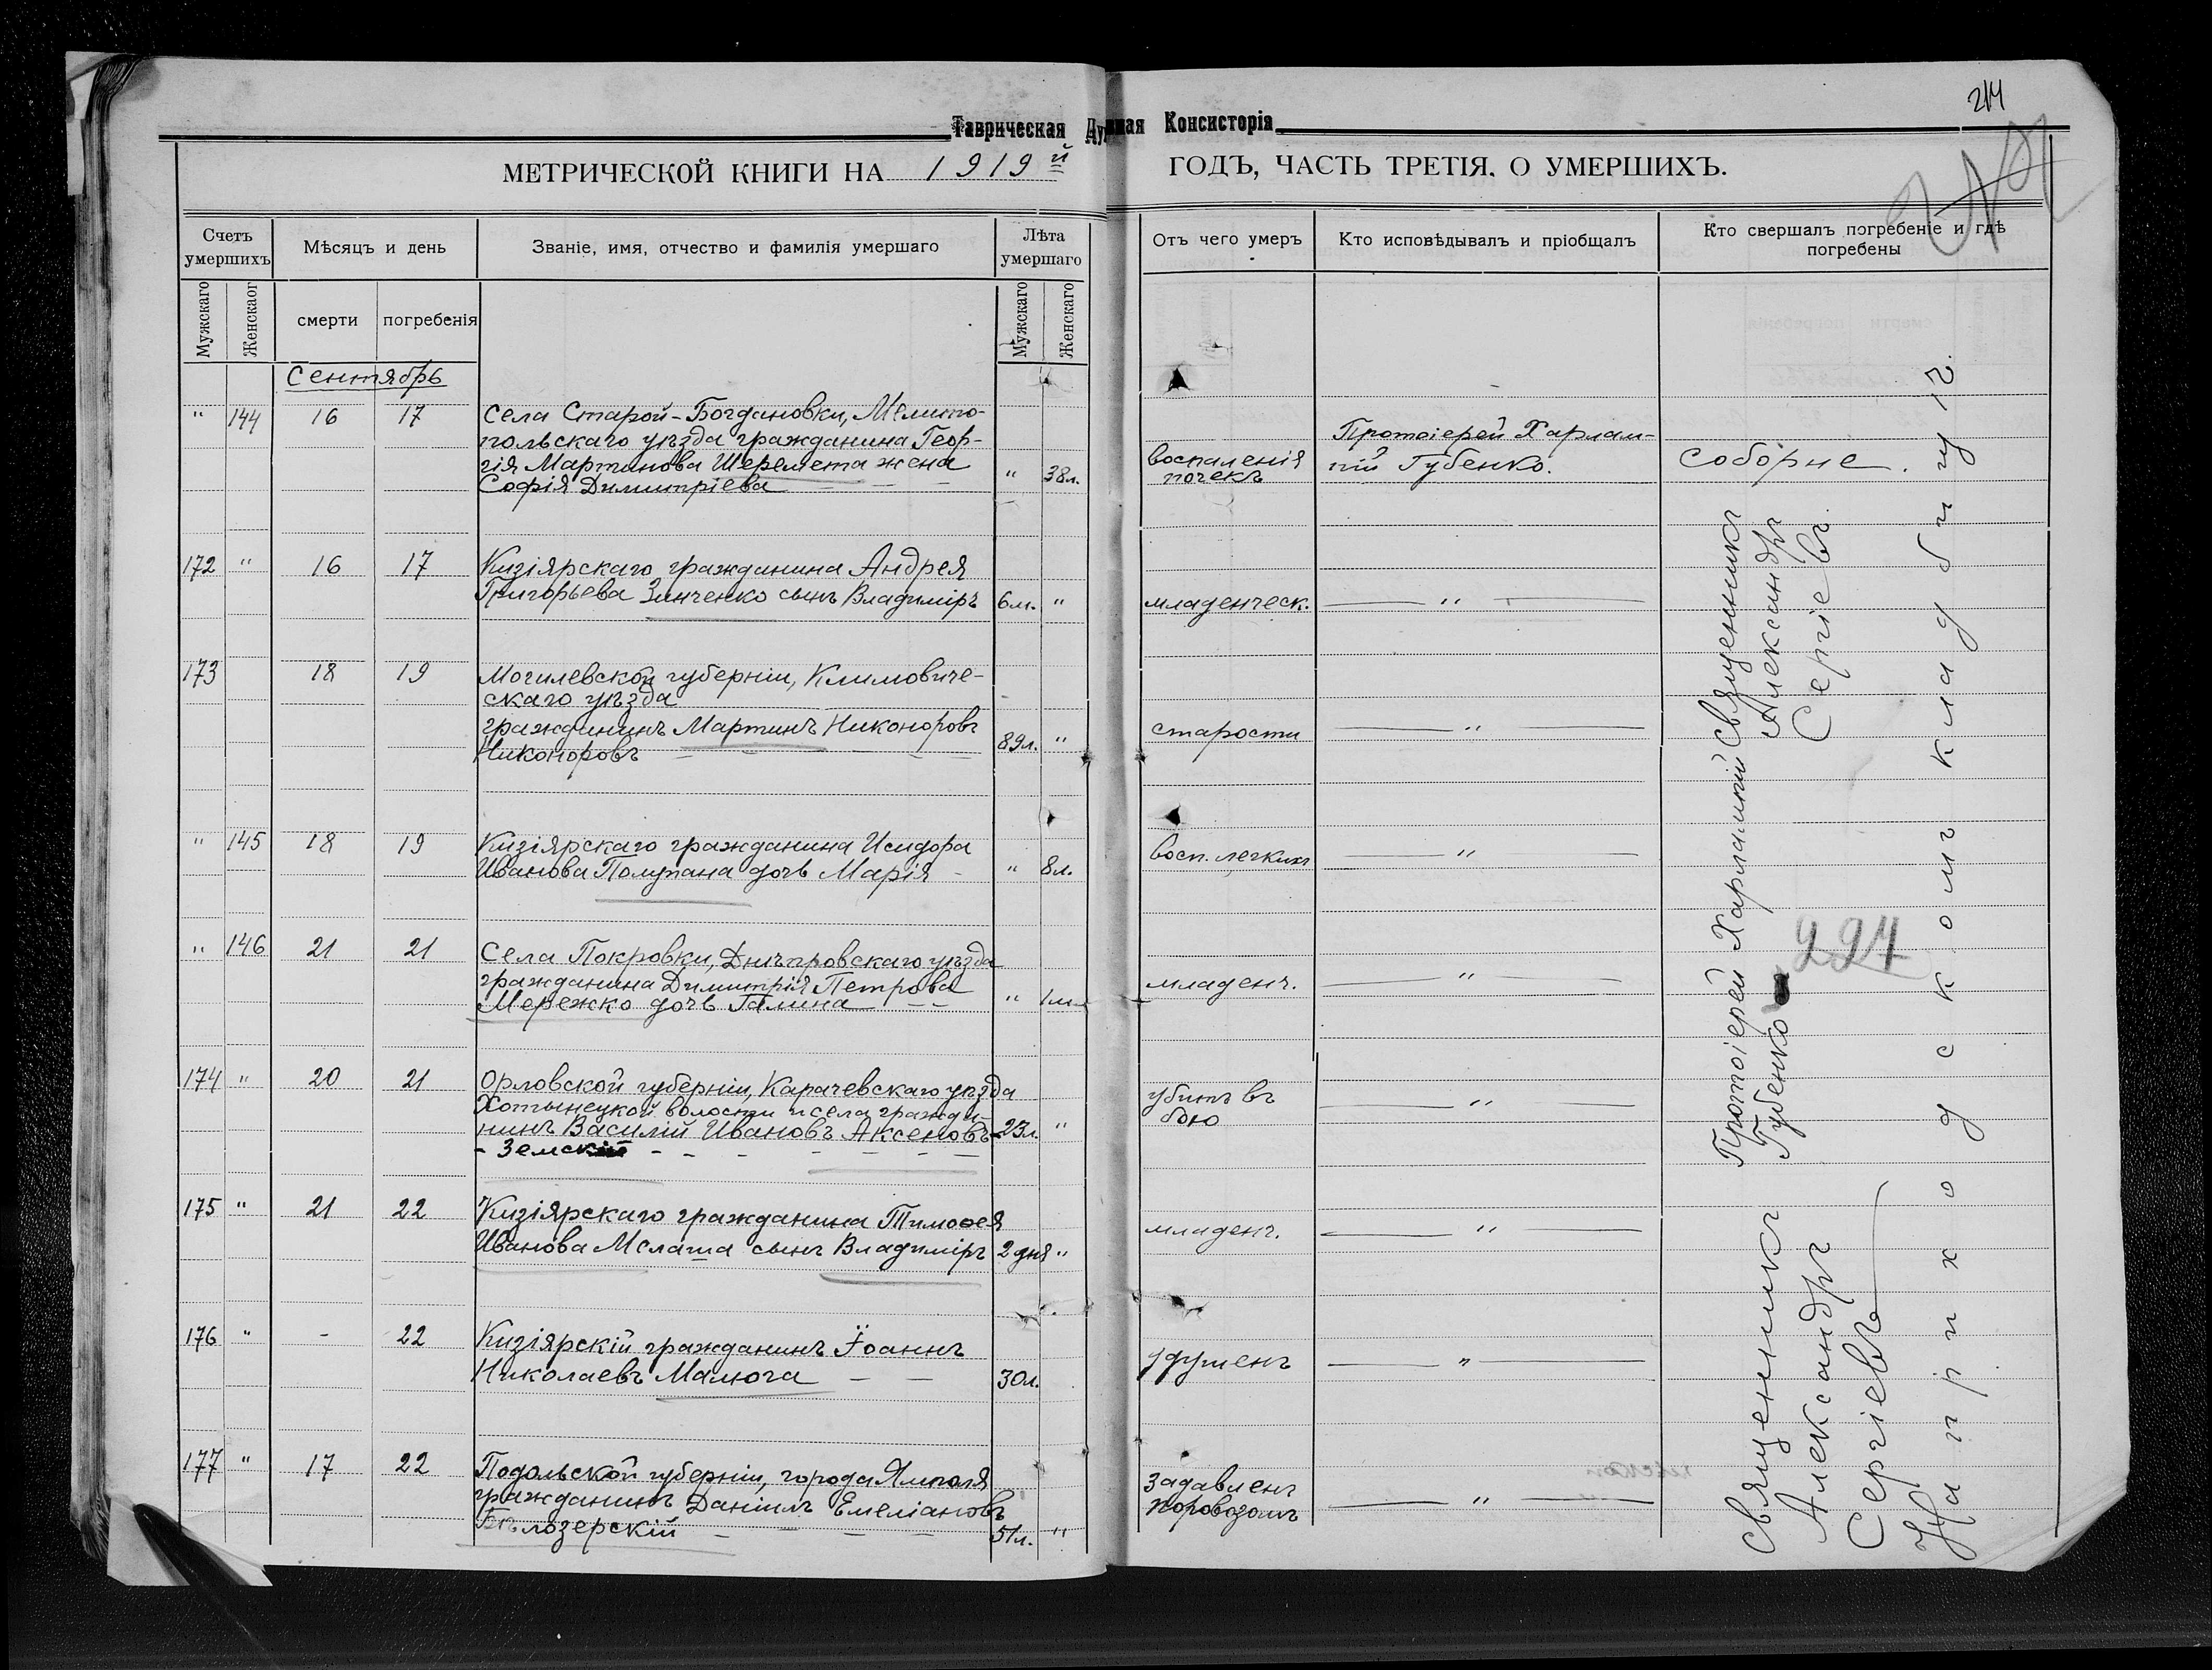 214
Таврическая Духовная Консисторія
МЕТРИЧЕСКОЙ КНИГИ НА 1919й ГОДЪ, ЧАСТЬ ТРЕТІЯ. О УМЕРШИХЪ.
Счетъ умершихъ
Мужскаго
Женскаог
Мѣсяцъ и день
смерти
погребенія
Званіе, имя, отчество и фамилія умершаго
Лѣта умершаго
Мужскаго
Женскаго
Отъ чего умеръ
Кто исповѣдывалъ и пріобщалъ
Кто свершалъ погребеніе и гдѣ погребены
Сентябрь
" 144 16 17
Села Старой-Богдановки, Мелито-
польскаго уѣзда гражданина Геор-
гія Мартинова Шеремета жена
Софія Димитріева
" 38л.
воспаленія
почекъ
Протоіерей Харлам-
пій Губенко.
Соборне.
172 " 16 17
Кизіярскаго гражданина Андрея
Григорьева Зинченко сынъ Владиміръ
6м. "
младенческ.
"
173 18 19
Могилевской губерніи, Климовиче-
скаго уѣзда
гражданинъ Мартинъ Никоноровъ
Никоноровъ
89л. "
старости
"
" 145 18 19
Кизіярскаго гражданина Исидора
Иванова Полупана дочь Марія
" 8л.
восп. легкихъ
"
" 146 21 21
Села Покровки, Днѣпровскаго уѣзда
гражданина Димитрія Петрова
Мережко дочь Галина
" 1м.
младенч.
"
174 " 20 21
Орловской губерніи, Карачевскаго уѣзда
Хотынецкой волости и села гражда-
нинъ Василій Ивановъ Аксеновъ-
- Земскій
23л. "
убитъ въ
бою
"
175 " 21 22
Кизіярскаго гражданина Тимоѳея
Иванова Мелаша сынъ Владиміръ
2 дня "
младенч.
"
176 " - 22
Кизіярскій гражданинъ Іоаннъ
Николаевъ Малюга
30л.
удушенъ
"
177 " 17 22
Подольской губерніи, города Ямполя
гражданинъ Даніилъ Емеліановъ
Бѣлозерскій
51л. "
задавленъ
поровозомъ
"
Протоіерей Харлампій
Губенко
Священникъ
Александръ
Сергіевъ
294
Священникъ
Александръ
Сергіевъ
На приходскомъ кладбищѣ.